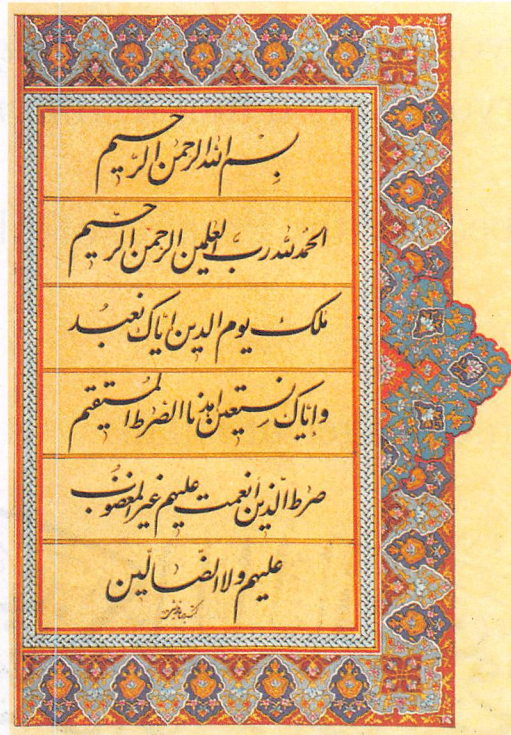 بسم الله الرحمن الرحیم
الحمد لله رب العلمین الرحمن الرحیم
ملک یوم الدین ایاک نعبد
وایاک نستعین اهدنا الصرط المستقیم
صرط الذین انعمت علیهم غیر المغضوب
علیهم ولا الضالین